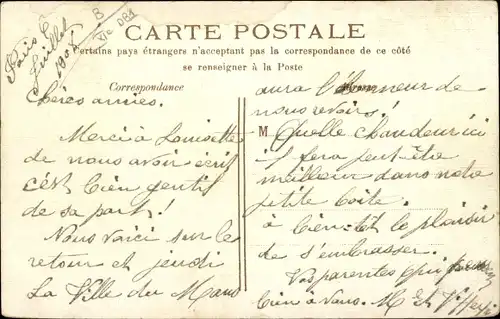 Paris 6
Juillet
1908
CARTE POSTALE
Certains pays étrangers n'acceptent pas la correspondance de ce côté
se renseigner à la Poste
Correspondance
Chères amies.
Merci à Louisette
de nous avoir écrit
c'est bien gentil
de sa part!
Nous voici sur le
retour et jeudi
La Ville du Mans
aura l'honneur de
nous revoir!
M Quelle chaleur ici
il fera peut-être
meilleur dans notre
petite boite.
à bientôt le plaisir
de s'embrasser.
Vos parentes qui
bien à vous.